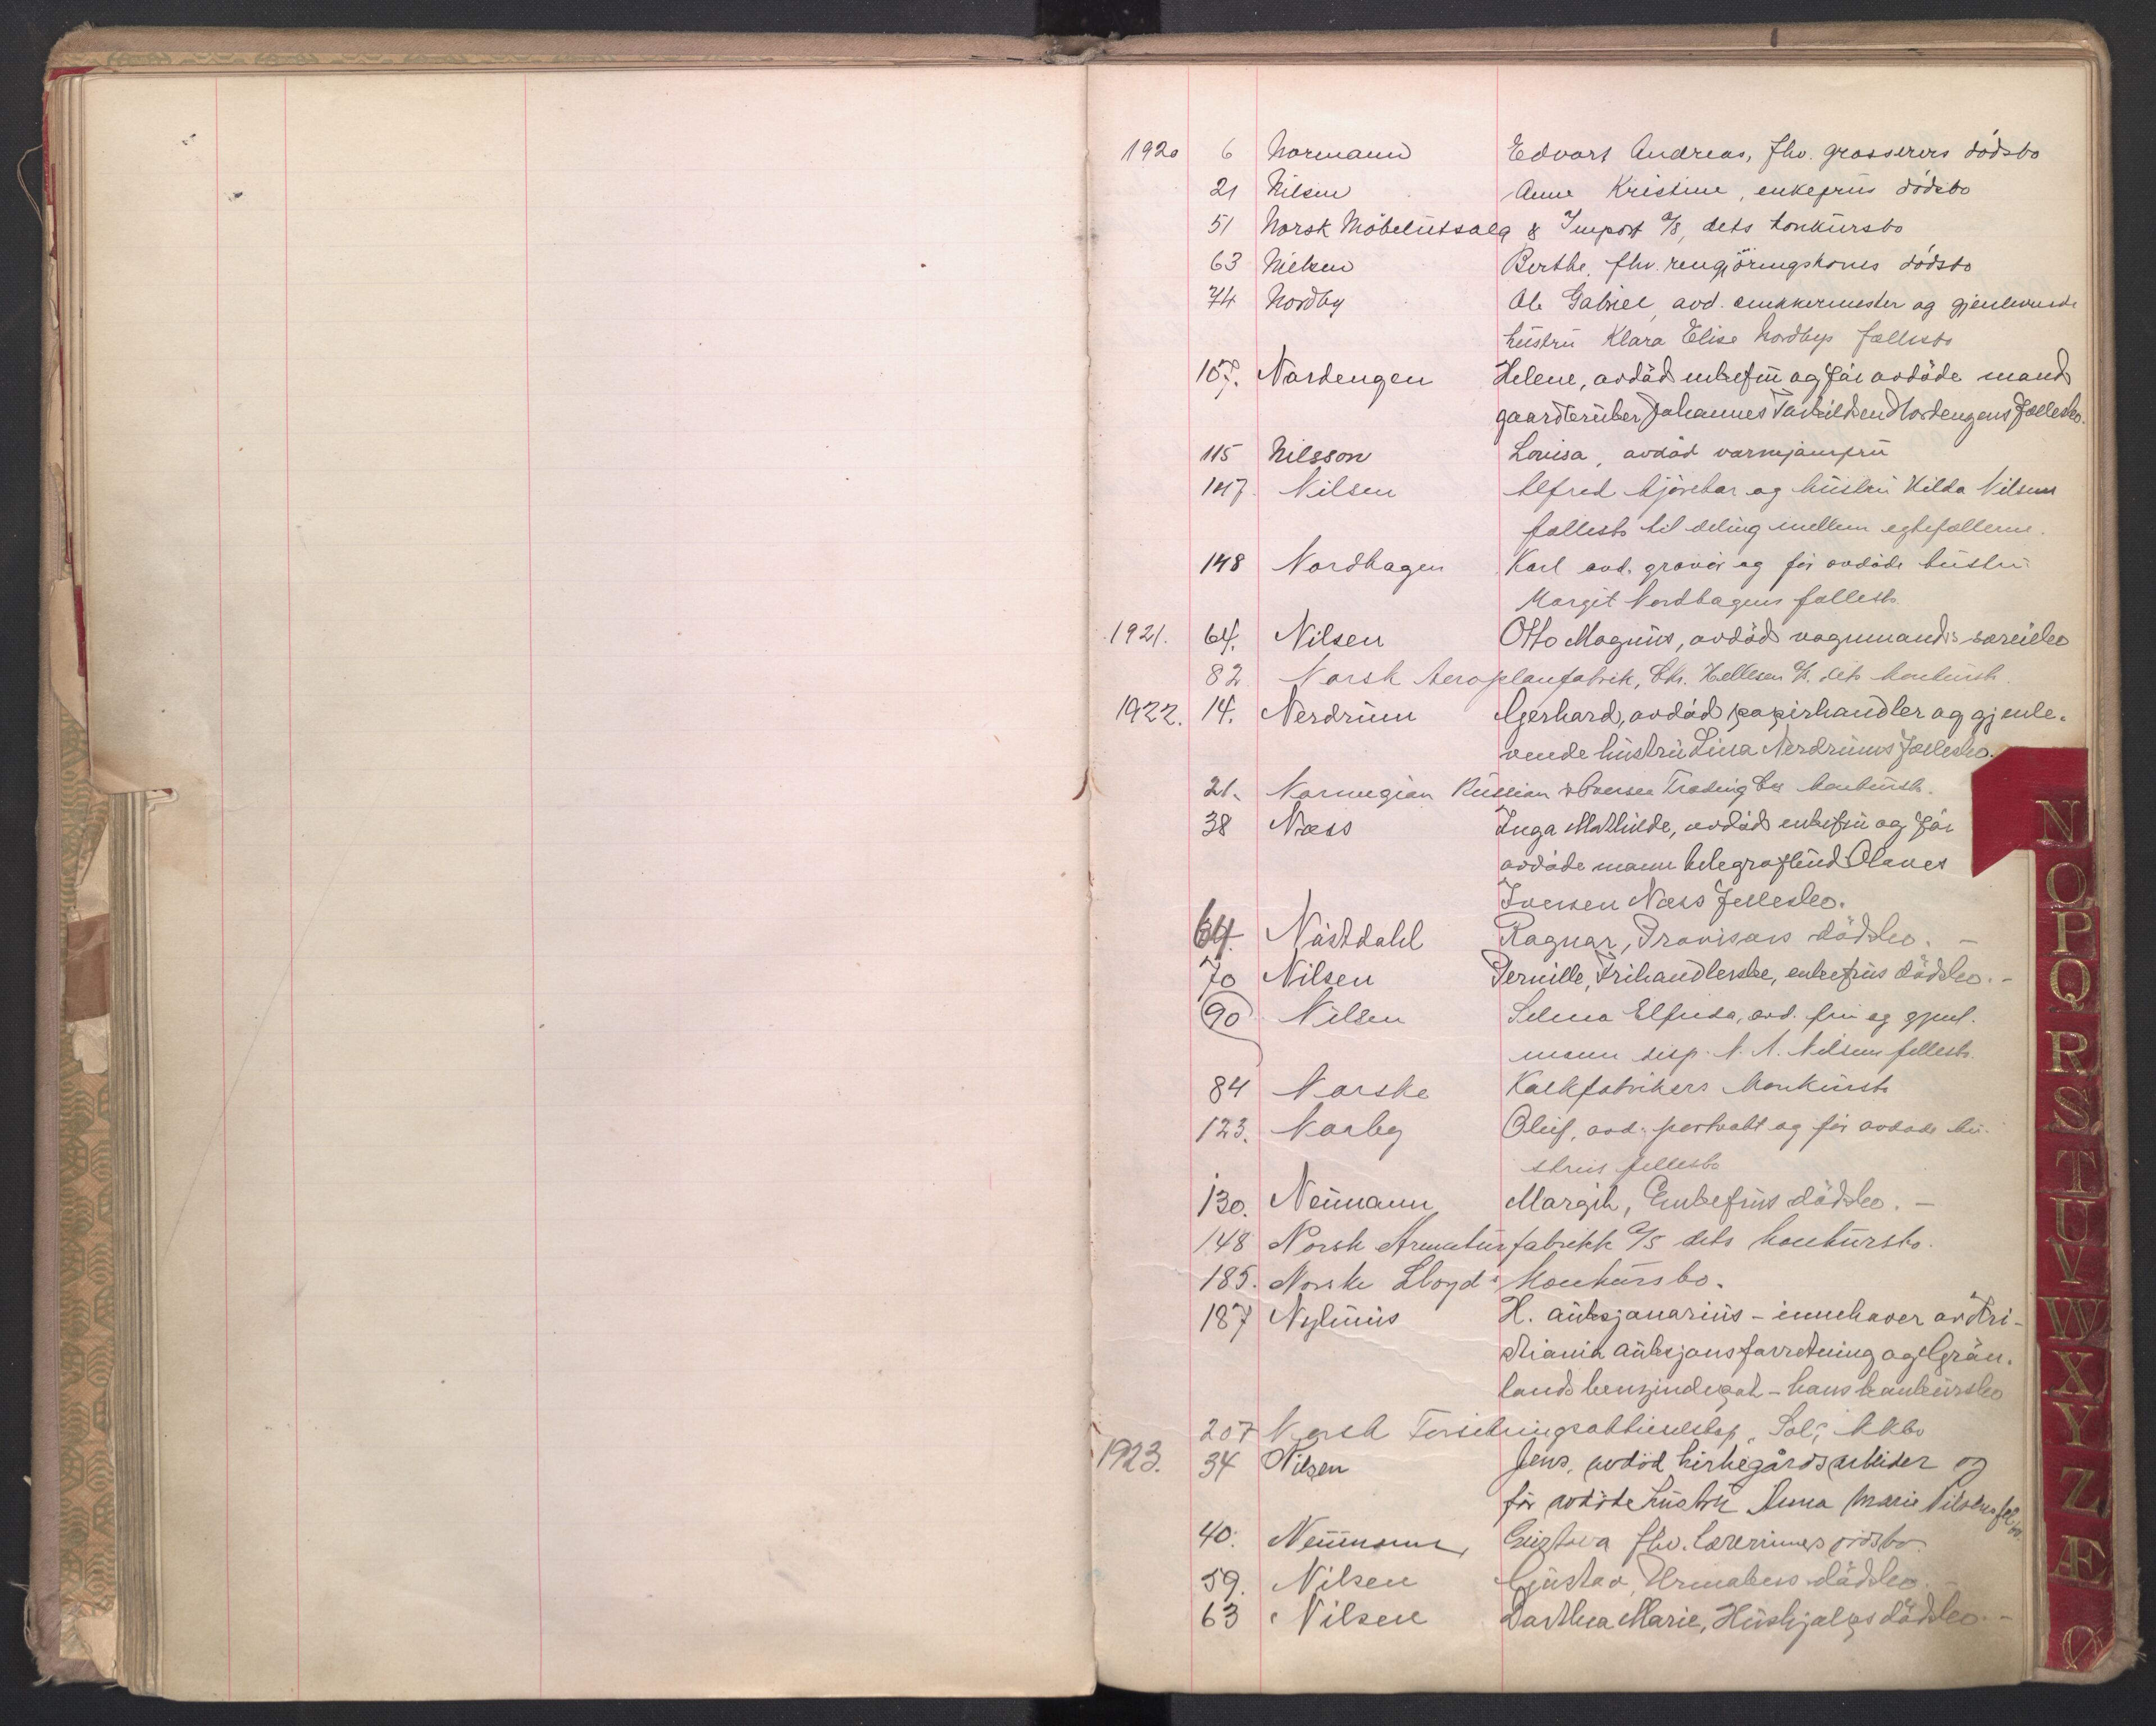 1920 6 Normann Edvart Andreas, fhv. grosserers dödsbo
21 Nilsen Anne Kristine, enkefrus dödsbo
51 Norsk Möbelutsalg & Import A/S, dets konkursbo
63 Nielsen Berthe, fhv. rengjöringskones dödsbo
74 Nordby Ole Gabriel, avd. snekkermester og gjenlevende
hustru Klara Elise Nordbys fællesbo
107. Nordengen Helene, avdöd enkefru og för avdöde mand
gaardbruker Johannes Torkildsen Nordengens Fællesbo.
115 Nilsson Lovisa, avdöd varmejomfru
147. Nilsen Alfred kjörekar og hustru Hilda Nilsens
fællesbo til deling mellem egtefællerne.
148 Nordhagen Karl avd. gravör og för avdöde hustru
Margit Nordhagens fællesbo
1921. 64. Nilsen Otto Magnus, avdöd vognmands særeiebo
82. Norsk Aeroplanfabrik, Chr. Hellesen A/S. dets konkursbo.
1922. 14. Nerdrum Gerhard, avdöd papirhandler og gjenle-
vende hustru Lina Nerdrums Fællesbo.
21. Norwegian Russian & Oversea Trading Co's konkursbo.
38 Næss Inga Mathilde, avdöd enkefru og för
avdöde mann telegrafbud Olaves
Iversen Næss Fellesbo.
64. Nöstdahl Ragnar, Provisors dödsbo. –
70 Nilsen Pernille, Frihandlerske, enkefrus dödsbo. –
90 Nilsen Selma Elfrida, avd. fru og gjenl.
mann disp. N. A. Nilsens fellesbo.
84 Norske Kalkfabrikers konkursbo
123. Norby Oluf, avd. portvakt og för avdöde hu-
strus fellesbo
130. Neumann Margit, Enkefrus dödsbo. –
148 Norsk Armaturfabrikk A/S dets konkursbo.
185. Norske Lloyd's konkursbo.
187 Nylunis H. auksjonarius – innehaver av Kri-
stiania auksjonsforretning og Grön-
lands bensindepot – hans konkursbo
207 Norsk Forsikringsaktieselskap "Sol", kkbo
1923. 34 Nilsen Jens, avdöd kirkegårdsarbeider og
för avdöde hustru Anna Marie Nilsens fel.bo.
40. Neumann, Gustava fhv. lærerinnes dödsbo.
59. Nilsen Gustav, Urmakers dödsbo. –
63 Nilsen Dorthea Marie, Hushjelps dödsbo. –
N
O
P
Q
R
S
T
U
V
W
X
Y
Z
Æ
Ø